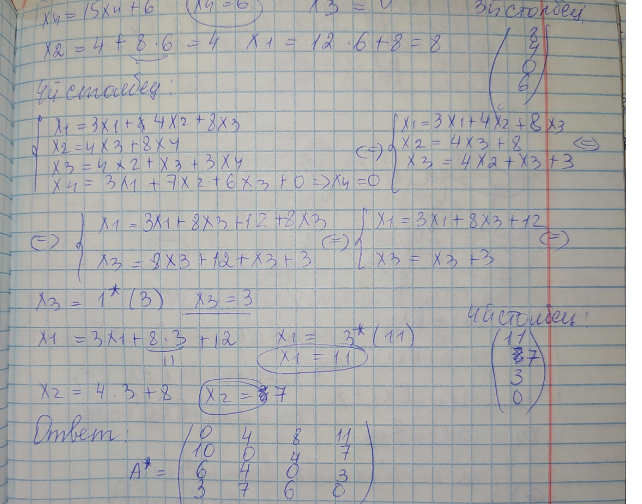 x4 = 15x4 + 6 x4 = 6 x3 = 4 3й столбец
x2 = 4 + 8·6 = 4 x1 = 12·6 + 8 = 8
(8
4
0
6)
4й столбец:
{ x1 = 3x1 + 4x2 + 8x3
x2 = 4x3 + 8x4
x3 = 4x2 + x3 + 3x4
x4 = 3x1 + 7x2 + 6x3 + 0 => x4 = 0
(=) { x1 = 3x1 + 4x2 + 8x3
x2 = 4x3 + 8
x3 = 4x2 + x3 + 3 (=)
(=) { x1 = 3x1 + 8x3 + 12 + 8x3
x3 = 8x3 + 12 + x3 + 3
(=) { x1 = 3x1 + 8x3 + 12
x3 = x3 + 3 (=)
x3 = 1* (3) x3 = 3
x1 = 3x1 + 8·3 + 12 x1 = 3* (11)
11 x1 = 11
x2 = 4·3 + 8 x2 = 7
4й столбец:
(11
7
3
0)
Ответ:
A* = (0 4 8 11
10 0 4 7
6 4 0 3
3 7 6 0)